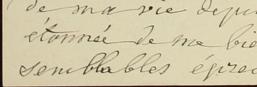 de ma vie depui
étonnée de me bie
semblables égare